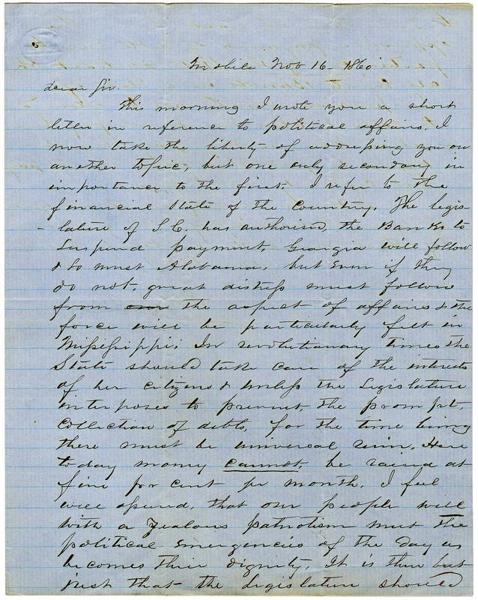 Mobile Nov 16 - 1860
dear Sir
This morning I wrote you a short
letter in reference to political affairs. I
now take the liberty of addressing you on
another topic, but one only secondary in
importance to the first. I refer to the
financial State of the Country. The legis-
-lature of S.C. has authorised the Banks to
suspend payment, Georgia will follow
& so must Alabama, but even if they
do not, great distress must follow
from the aspect of affairs & the
force will be particularly felt in
Mississippi. In revolutionary times the
State should take care of the interests
of her citizens & unless the Legislature
interposes to prevent the prompt
collection of debts, for the time being
there must be universal ruin. Here
today money cannot be raised at
five per cent per month. I feel
well assured, that our people will
with a zealous patriotism meet the
political emergencies of the day as
becomes their dignity. It is then but
just that the legislature should